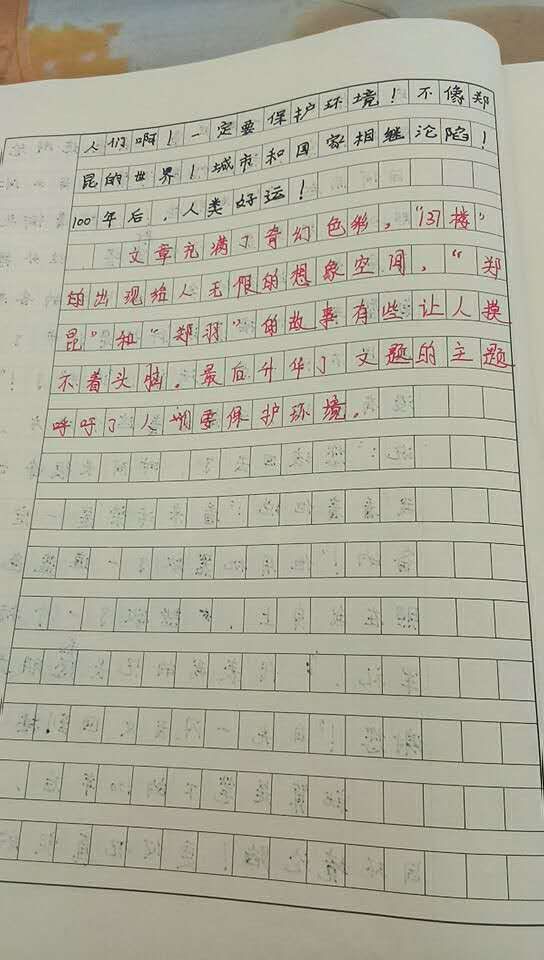 人们啊！一定要保护环境！不像郑
昆的世界！城市和国家相继沦陷！
100年后，人类好运！
文章充满了奇幻色彩，“137楼”
的出现给人无限的想象空间，“郑
昆”和“郑羽”的故事有些让人摸
不着头脑。最后升华了文题的主题
呼吁了人们要保护环境。